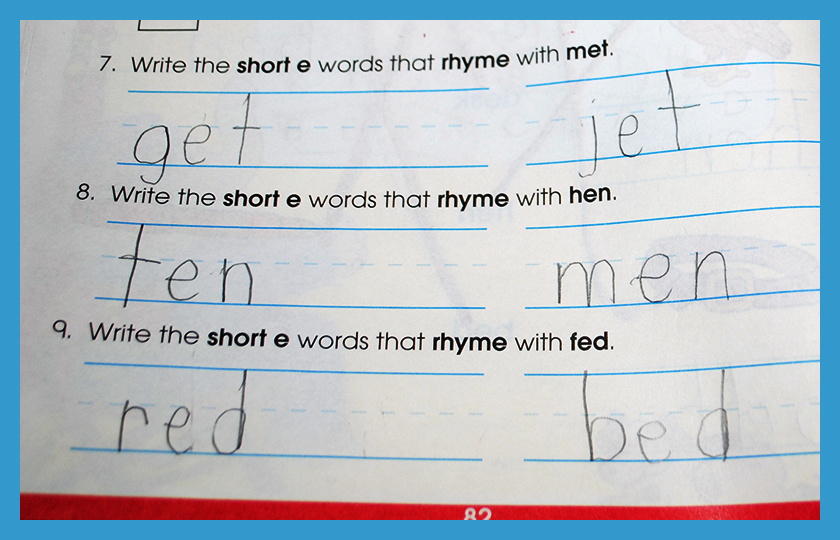 7. Write the short e words that rhyme with met.
get jet
8. Write the short e words that rhyme with hen.
ten men
9. Write the short e words that rhyme with fed.
red bed
82